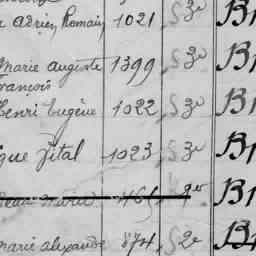 Adrien Romain 1021 S 3e B1
Marie Auguste 1399 S 3e B1
François
Henri Eugène 1022 S 3e B1
que Vital 1023 S 3e B1
Marie 2e B1
Marie Alexandre 874 S 2e B